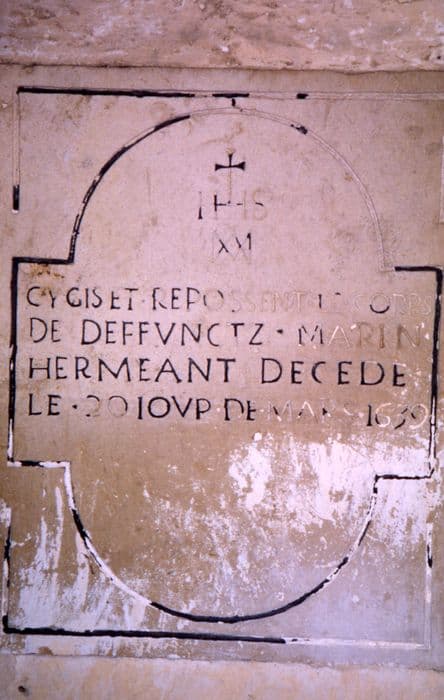 IHS
XM
CY GIS ET · REPOSSENT LE CORPS
DE DEFFVNCTZ · MARIN
HERMEANT DECEDE
LE · 20 IOVP · DE MARS 1639